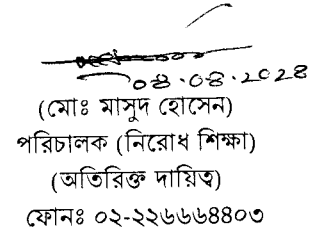 ০৪.০৪.২০২৪
(মোঃ মাসুদ হোসেন)
পরিচালক (নিরোধ শিক্ষা)
(অতিরিক্ত দায়িত্ব)
ফোনঃ ০২-২২৬৬৬৪৪০৩